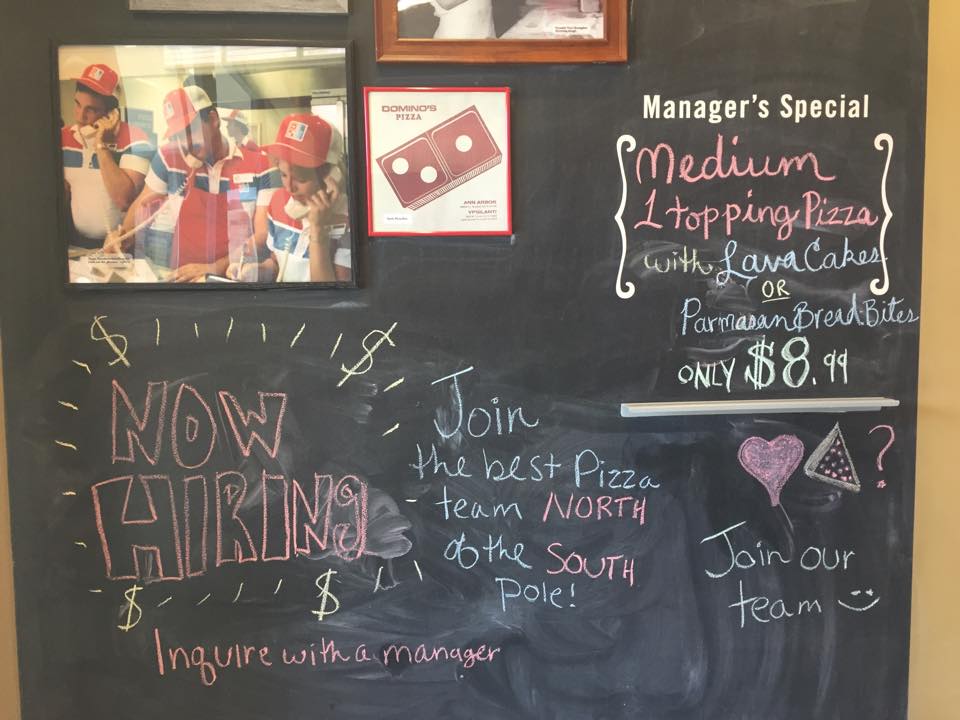 DOMINO'S
PIZZA
ANN ARBOR
YPSILANTI
Manager's Special
Medium
1 topping Pizza
with Lava Cakes
OR
Parmasan Bread Bites
ONLY $8.99
$ $
NOW
HIRING
$ $
Inquire with a manager
Join
the best Pizza
team NORTH
of the SOUTH
Pole!
?
Join our
team